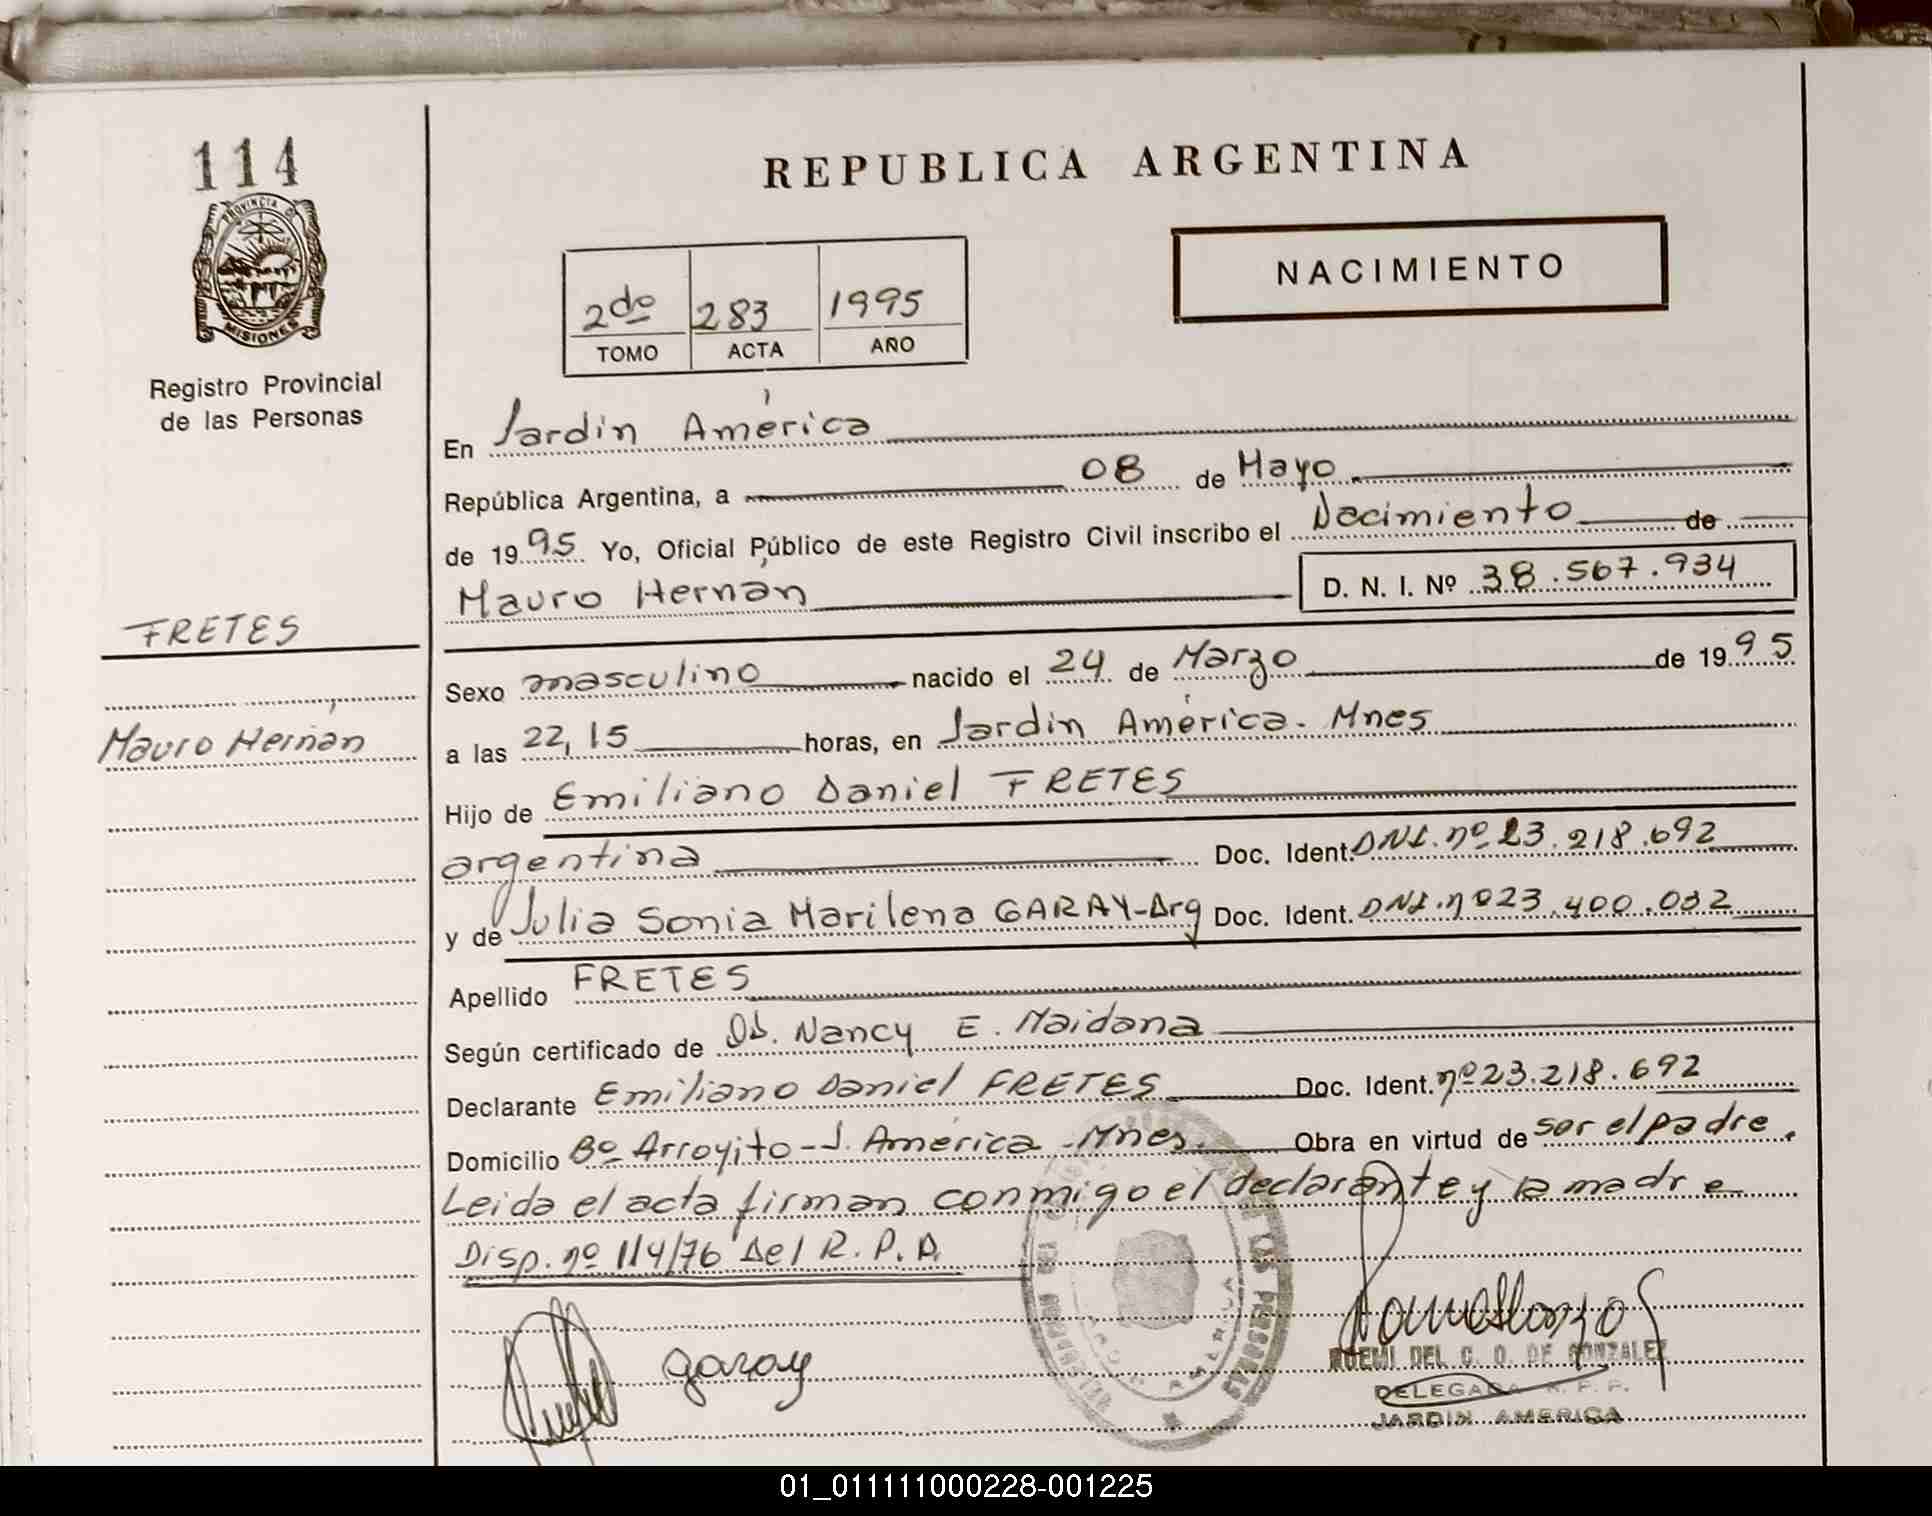 114
PROVINCIA DE
MISIONES
Registro Provincial
de las Personas
FRETES
Mauro Hernán
REPUBLICA ARGENTINA
NACIMIENTO
2do 283 1995
TOMO ACTA AÑO
En Jardín América
República Argentina, a 08 de Mayo
de 1995 Yo, Oficial Público de este Registro Civil inscribo el Nacimiento de
Mauro Hernán D. N. I. Nº 38.567.934
Sexo masculino nacido el 24 de Marzo de 1995
a las 22,15 horas, en Jardín América. Mnes
Hijo de Emiliano Daniel FRETES
argentina Doc. Ident. DNI. nº 23.218.692
y de Julia Sonia Marilena GARAY-Arg Doc. Ident. DNI. nº 23.400.032
Apellido FRETES
Según certificado de Ob. Nancy E. Maidana
Declarante Emiliano Daniel FRETES Doc. Ident. nº 23.218.692
Domicilio Bº Arroyito - J. América - Mnes. Obra en virtud de ser el padre.
Leida el acta firman conmigo el declarante y la madre
Disp. nº 114/76 del R. P. P.
garay
NOEMI DEL C. O. DE GONZALEZ
DELEGADA R. P. P.
JARDIN AMERICA
01_011111000228-001225